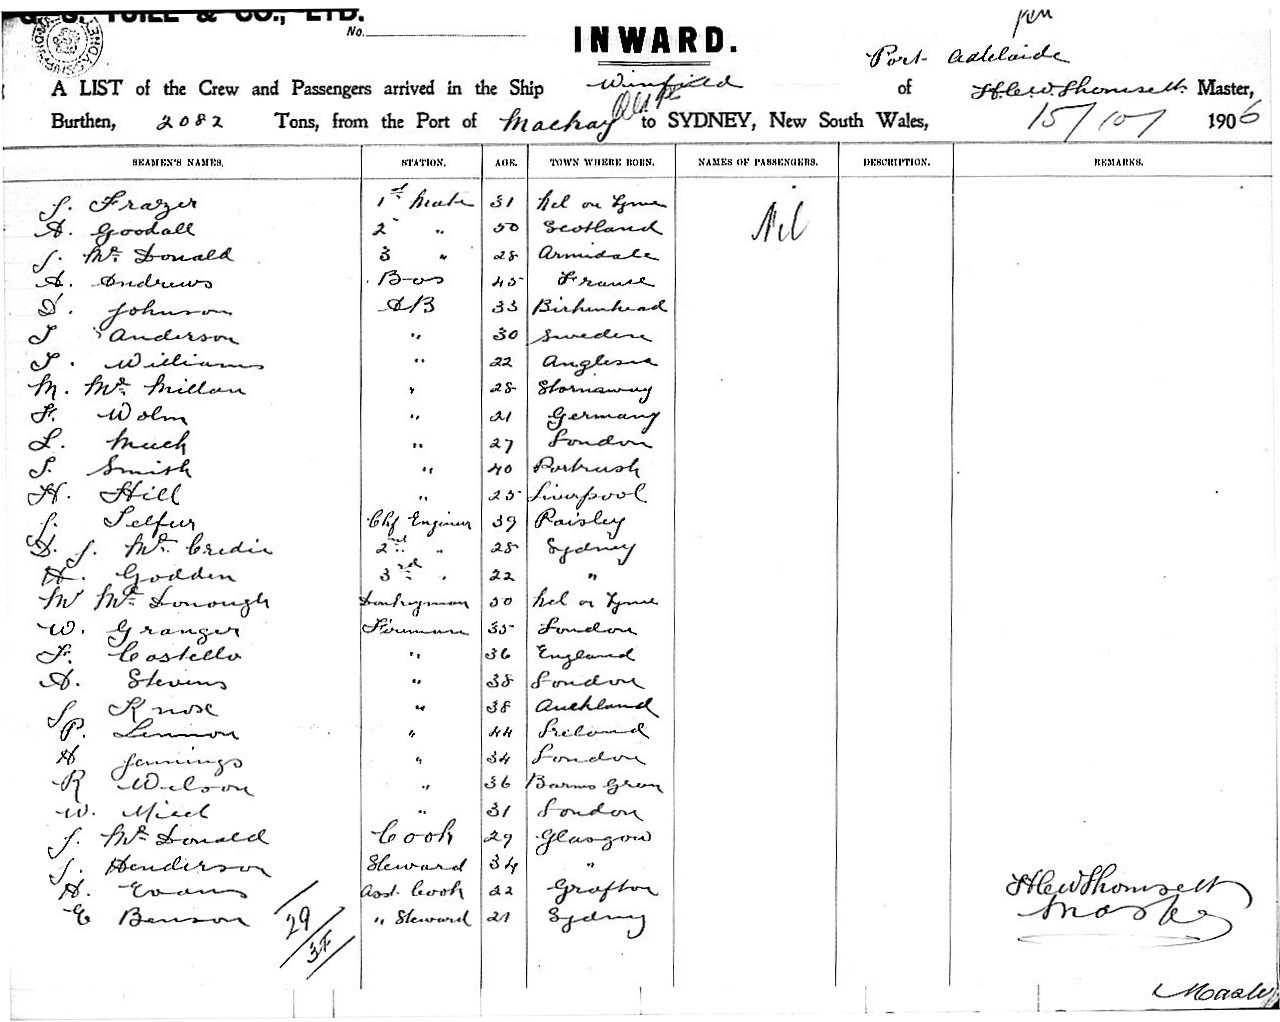 & CO., LTD.
No.
INWARD.
Port Adelaide
A LIST of the Crew and Passengers arrived in the Ship Winfield of Master,
Burthen, 2082 Tons, from the Port of Mackay to SYDNEY, New South Wales, 15/10/ 1906
SEAMEN'S NAMES. STATION. AGE. TOWN WHERE BORN. NAMES OF PASSENGERS. DESCRIPTION. REMARKS.
J. Frazer 1st Mate 31 Ncl on Tyne
Nil
A. Goodall 2 " 50 Scotland
J. Mc Donald 3 " 28 Armidale
A. Andrews Bos 45 Franse
D. Johnson AB 33 Birkenhead
J Anderson " 30 Sweden
J. Williams " 22 Anglesea
M. Mc Millan " 28 Stornaway
F. Wolm " 21 Germany
L. Much " 27 London
S. Smith " 40 Portrush
H. Hill " 25 Liverpool
J. Telfur Chf Engineer 39 Paisley
D. J. Mc Credie 2nd " 28 Sydney
H. Godden 3rd " 22 "
M Mc Donough Donkeyman 50 Ncl on Tyne
W. Granger Fireman 35 London
F. Costello " 36 England
A. Stevens " 38 London
J Knose " 38 Auckland
P. Lennon " 44 Ireland
H Jennings " 34 London
R Wilson " 36 Barns Green
W. " 31 London
J. Mc Donald Cook 29 Glasgow
J. Henderson Steward 34 "
H. Evans Asst. Cook 22 Grafton
E Benson " Steward 21 Sydney
29
Master
Master